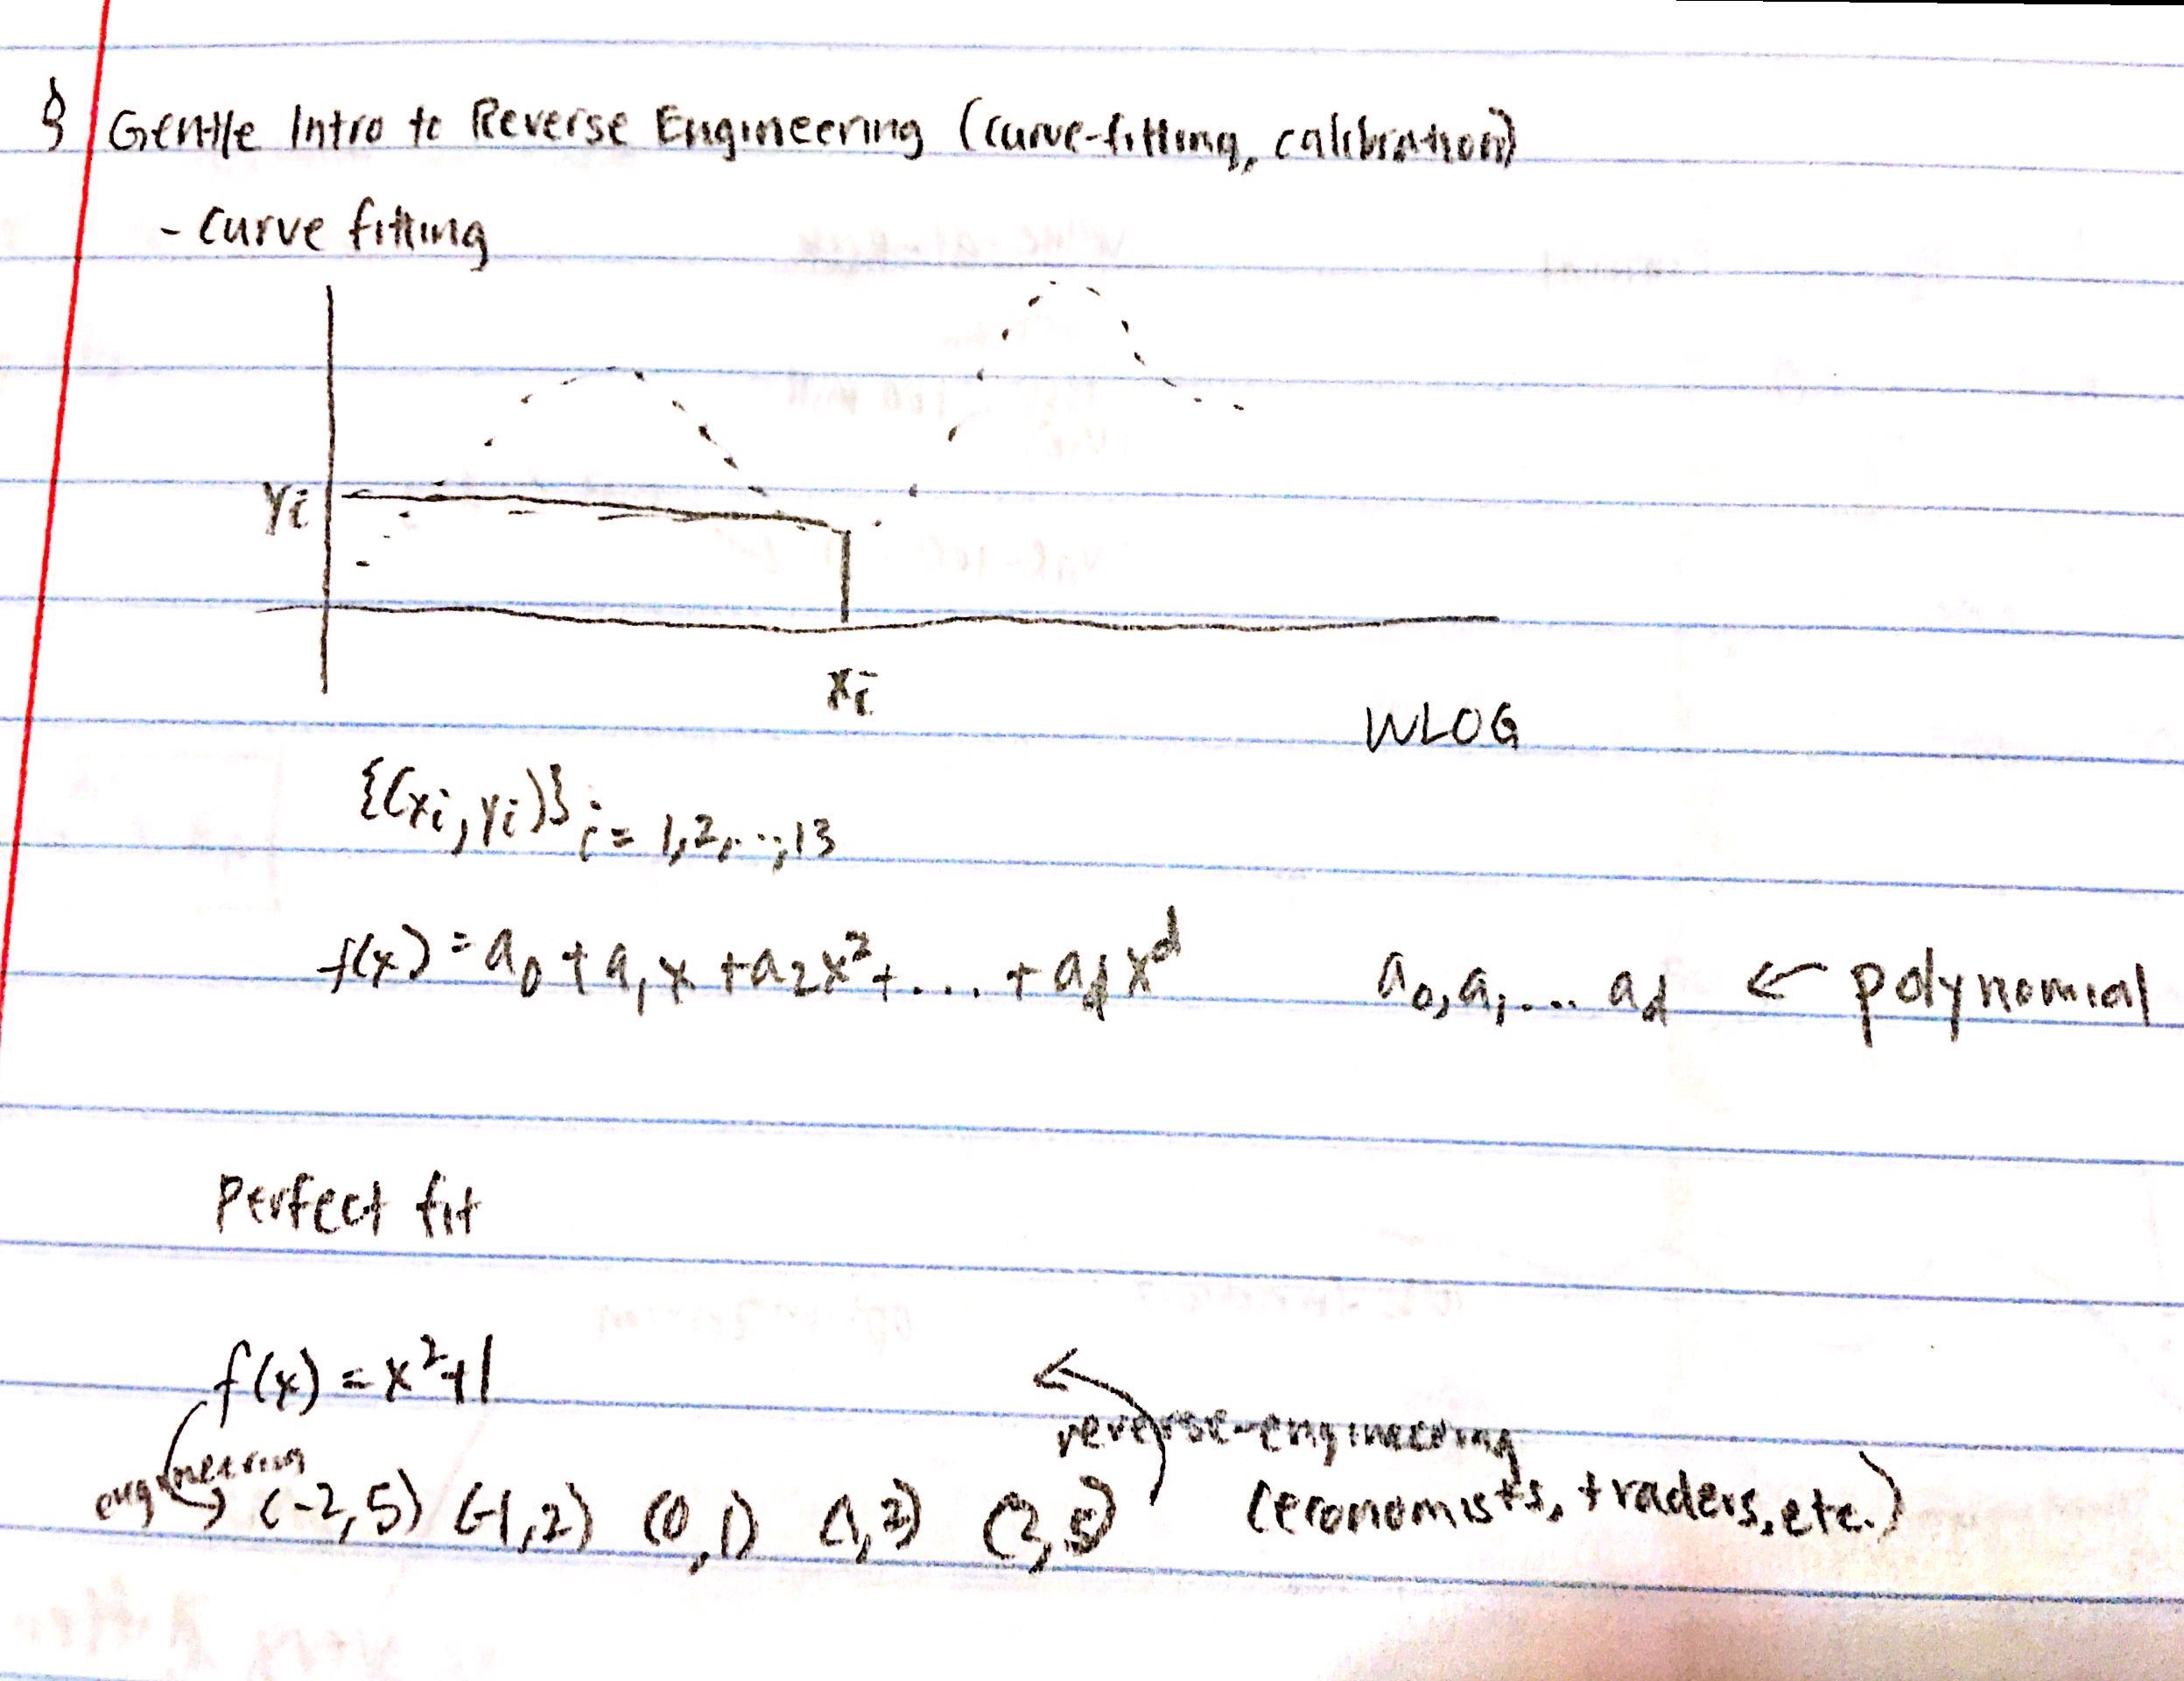 § Gentle Intro to Reverse Engineering (curve-fitting, calibration)
- Curve fitting
yi
xi
WLOG
{(xi, yi)} i = 1,2,...,13
f(x) = a0 + a1 x + a2 x² + .... + ad x^d a0, a1, ... ad ← polynomial
Perfect fit
f(x) = x²+1
reverse-engineering
engineering (-2,5) (-1,2) (0,1) (1,2) (2,5) (economists, traders, etc.)